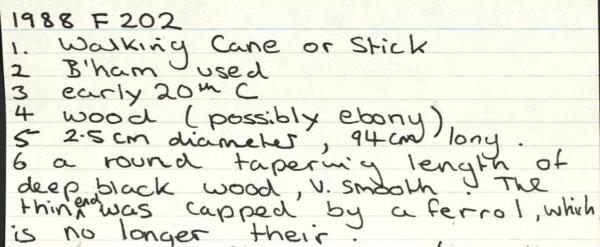 1988 F 202
1. Walking Cane or Stick
2 B'ham used
3 early 20th C
4 wood (possibly ebony)
5 2.5 cm diameter, 94 cm long.
6 a round tapering length of
deep black wood, v. smooth. The
thin end was capped by a ferrol, which
is no longer their.